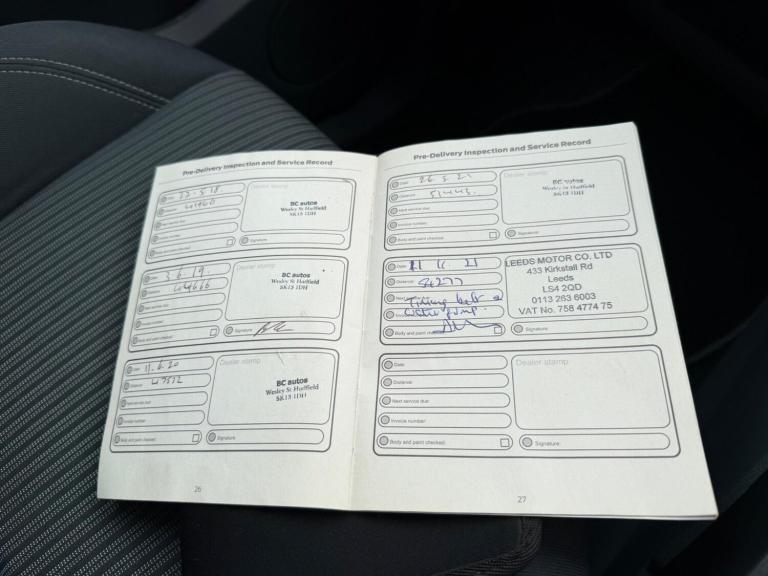 Pre-Delivery Inspection and Service Record
Date: 22.5.18
Distance:
Next service due:
Invoice number:
Body and paint checked:
Dealer stamp
BC autos
Wesley St Hadfield
SK13 1DH
Signature:
Date: 3.6.19.
Distance: 44666
Next service due:
Invoice number:
Body and paint checked:
Dealer stamp
BC autos
Wesley St Hadfield
SK13 1DH
Signature:
Date: 11.6.20
Distance: 47512
Next service due:
Invoice number:
Body and paint checked:
Dealer stamp
BC autos
Wesley St Hadfield
SK13 1DH
Signature:
26
Pre-Delivery Inspection and Service Record
Date: 26.5.21
Distance: 51443.
Next service due:
Invoice number:
Body and paint checked:
Dealer stamp
BC autos
Wesley St Hadfield
SK13 1DH
Signature:
Date: 21
Distance: 54277
Next
Timing belt &
water pump.
Body and paint
LEEDS MOTOR CO. LTD
433 Kirkstall Rd
Leeds
LS4 2QD
0113 263 6003
VAT No. 758 4774 75
Signature:
Date:
Distance:
Next service due:
Invoice number:
Body and paint checked:
Dealer stamp
Signature:
27